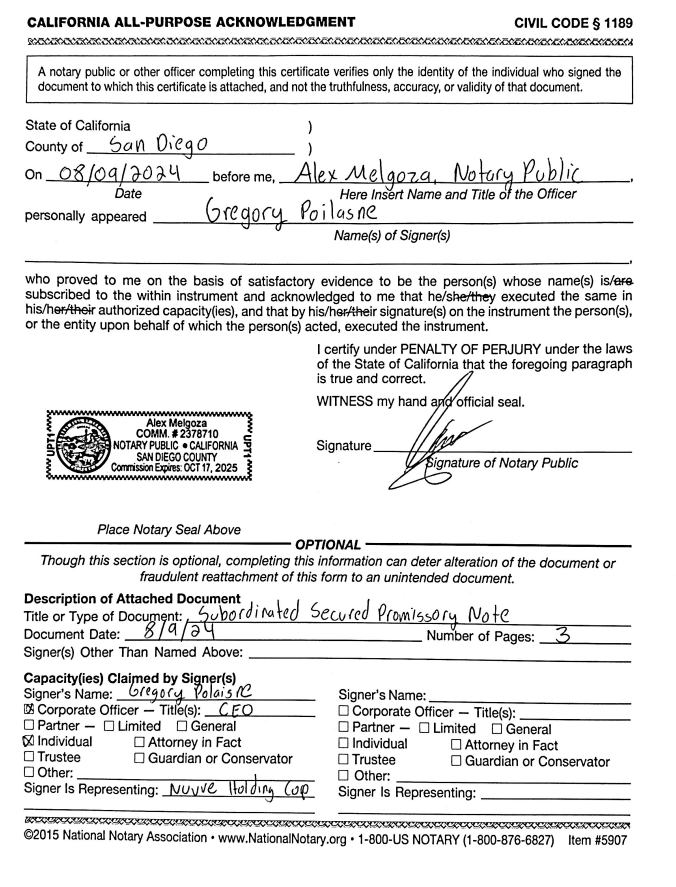 CALIFORNIA ALL-PURPOSE ACKNOWLEDGMENT CIVIL CODE § 1189
A notary public or other officer completing this certificate verifies only the identity of the individual who signed the
document to which this certificate is attached, and not the truthfulness, accuracy, or validity of that document.
State of California )
County of San Diego )
On 08/09/2024 before me, Alex Melgoza, Notary Public,
Date Here Insert Name and Title of the Officer
personally appeared Gregory Poilasne
Name(s) of Signer(s)
,
who proved to me on the basis of satisfactory evidence to be the person(s) whose name(s) is/are
subscribed to the within instrument and acknowledged to me that he/she/they executed the same in
his/her/their authorized capacity(ies), and that by his/her/their signature(s) on the instrument the person(s),
or the entity upon behalf of which the person(s) acted, executed the instrument.
I certify under PENALTY OF PERJURY under the laws
of the State of California that the foregoing paragraph
is true and correct.
WITNESS my hand and official seal.
Signature
Signature of Notary Public
UPT1 UPT1
Alex Melgoza
COMM. # 2378710
NOTARY PUBLIC • CALIFORNIA
SAN DIEGO COUNTY
Commission Expires: OCT 17, 2025
Place Notary Seal Above
OPTIONAL
Though this section is optional, completing this information can deter alteration of the document or
fraudulent reattachment of this form to an unintended document.
Description of Attached Document
Title or Type of Document: Subordinated Secured Promissory Note
Document Date: 8/9/24 Number of Pages: 3
Signer(s) Other Than Named Above:
Capacity(ies) Claimed by Signer(s)
Signer's Name: Gregory Polaisne Signer's Name:
☒ Corporate Officer — Title(s): CEO ☐ Corporate Officer — Title(s):
☐ Partner — ☐ Limited ☐ General ☐ Partner — ☐ Limited ☐ General
☒ Individual ☐ Attorney in Fact ☐ Individual ☐ Attorney in Fact
☐ Trustee ☐ Guardian or Conservator ☐ Trustee ☐ Guardian or Conservator
☐ Other: ☐ Other:
Signer Is Representing: Nuvve Holding Cop Signer Is Representing:
©2015 National Notary Association • www.NationalNotary.org • 1-800-US NOTARY (1-800-876-6827) Item #5907